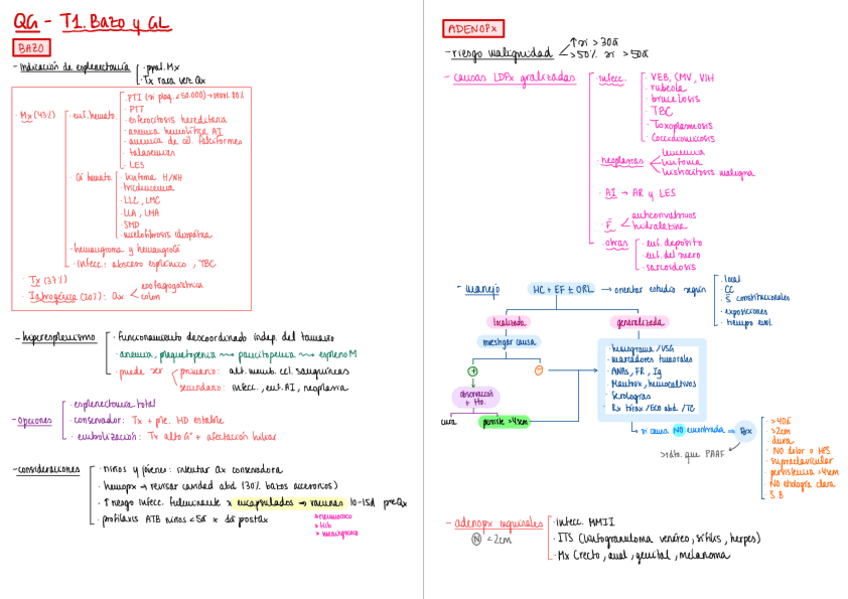 QG - T1. Bazo y GL
BAZO
- Indicación de esplenectomía
· ppal. Mx
· Tx rara vez Qx
· Mx (43%)
· enf. hemato.
· PTI (si plaq. < 50.000) → resol. 80%
· PTT
· esferocitosis hereditaria
· anemia hemolítica AI
· anemia de cel. falciformes
· talasemias
· LES
· Ca hemato
· linfoma H/NH
· tricoleucemia
· LLC, LMC
· LLA, LMA
· SMD
· mielofibrosis idiopática
· hemangioma y hemangioCa
· infecc.: absceso esplénico, TBC
· Tx (37%)
· Iatrogénica (20%): Qx
esofagogástrica
colon
- hiperesplenismo
· funcionamiento descoordinado indep. del tamaño
· anemia, plaquetopenia → pancitopenia → esplenoM
· puede ser
primario: alt. memb. cel. sanguíneas
secundario: infecc., enf. AI, neoplasia
- opciones
· esplenectomía total
· conservador: Tx + pte. HD estable
· embolización: Tx alto G° + afectación hiliar
- consideraciones
· niños y jóvenes: intentar Qx conservadora
· hemopx → revisar cavidad abd (30% bazos accesorios)
· ↑ riesgo infecc. fulminante x encapsulados → vacunas 10-15d preQx
· profilaxis ATB niños <5a x dš postQx
* neumococo
* Hib
* meningococo
ADENOPx
- riesgo malignidad
↑ si > 30a
> 50% si > 50a
- causas LDPx gralizadas
· infecc.
· VEB, CMV, VIH
· rubeola
· brucelosis
· TBC
· Toxoplasmosis
· Coccidiomicosis
· neoplasias
leucemia
linfoma
histiocitosis maligna
· AI → AR y LES
· F
anticonvulsivos
hidralazina
· otras
· enf. depósito
· enf. del suero
· sarcoidosis
- manejo
HC + EF ± ORL → orientar estudio según
· local
· CC
· S constitucionales
· exposiciones
· tiempo evol.
localizada
generalizada
investigar causa
+
-
observación + tto.
cura
persiste >4sem
· hemograma / VSG
· marcadores tumorales
· ANAs, FR, Ig
· Mantoux, hemocultivos
· Serologías
· Rx tórax / ECO abd / TC
↳ si causa NO encontrada = Bx
>rdto. que PAAF
· >40a
· >2cm
· dura
· NO dolor o HES
· supraclavicular
· persistencia >4sem
· NO etiología clara
· S. B
- adenopx inguinales
N <2cm
· infecc. MMII
· ITS (linfogranuloma venéreo, sífilis, herpes)
· Mx (recto, anal, genital, melanoma)